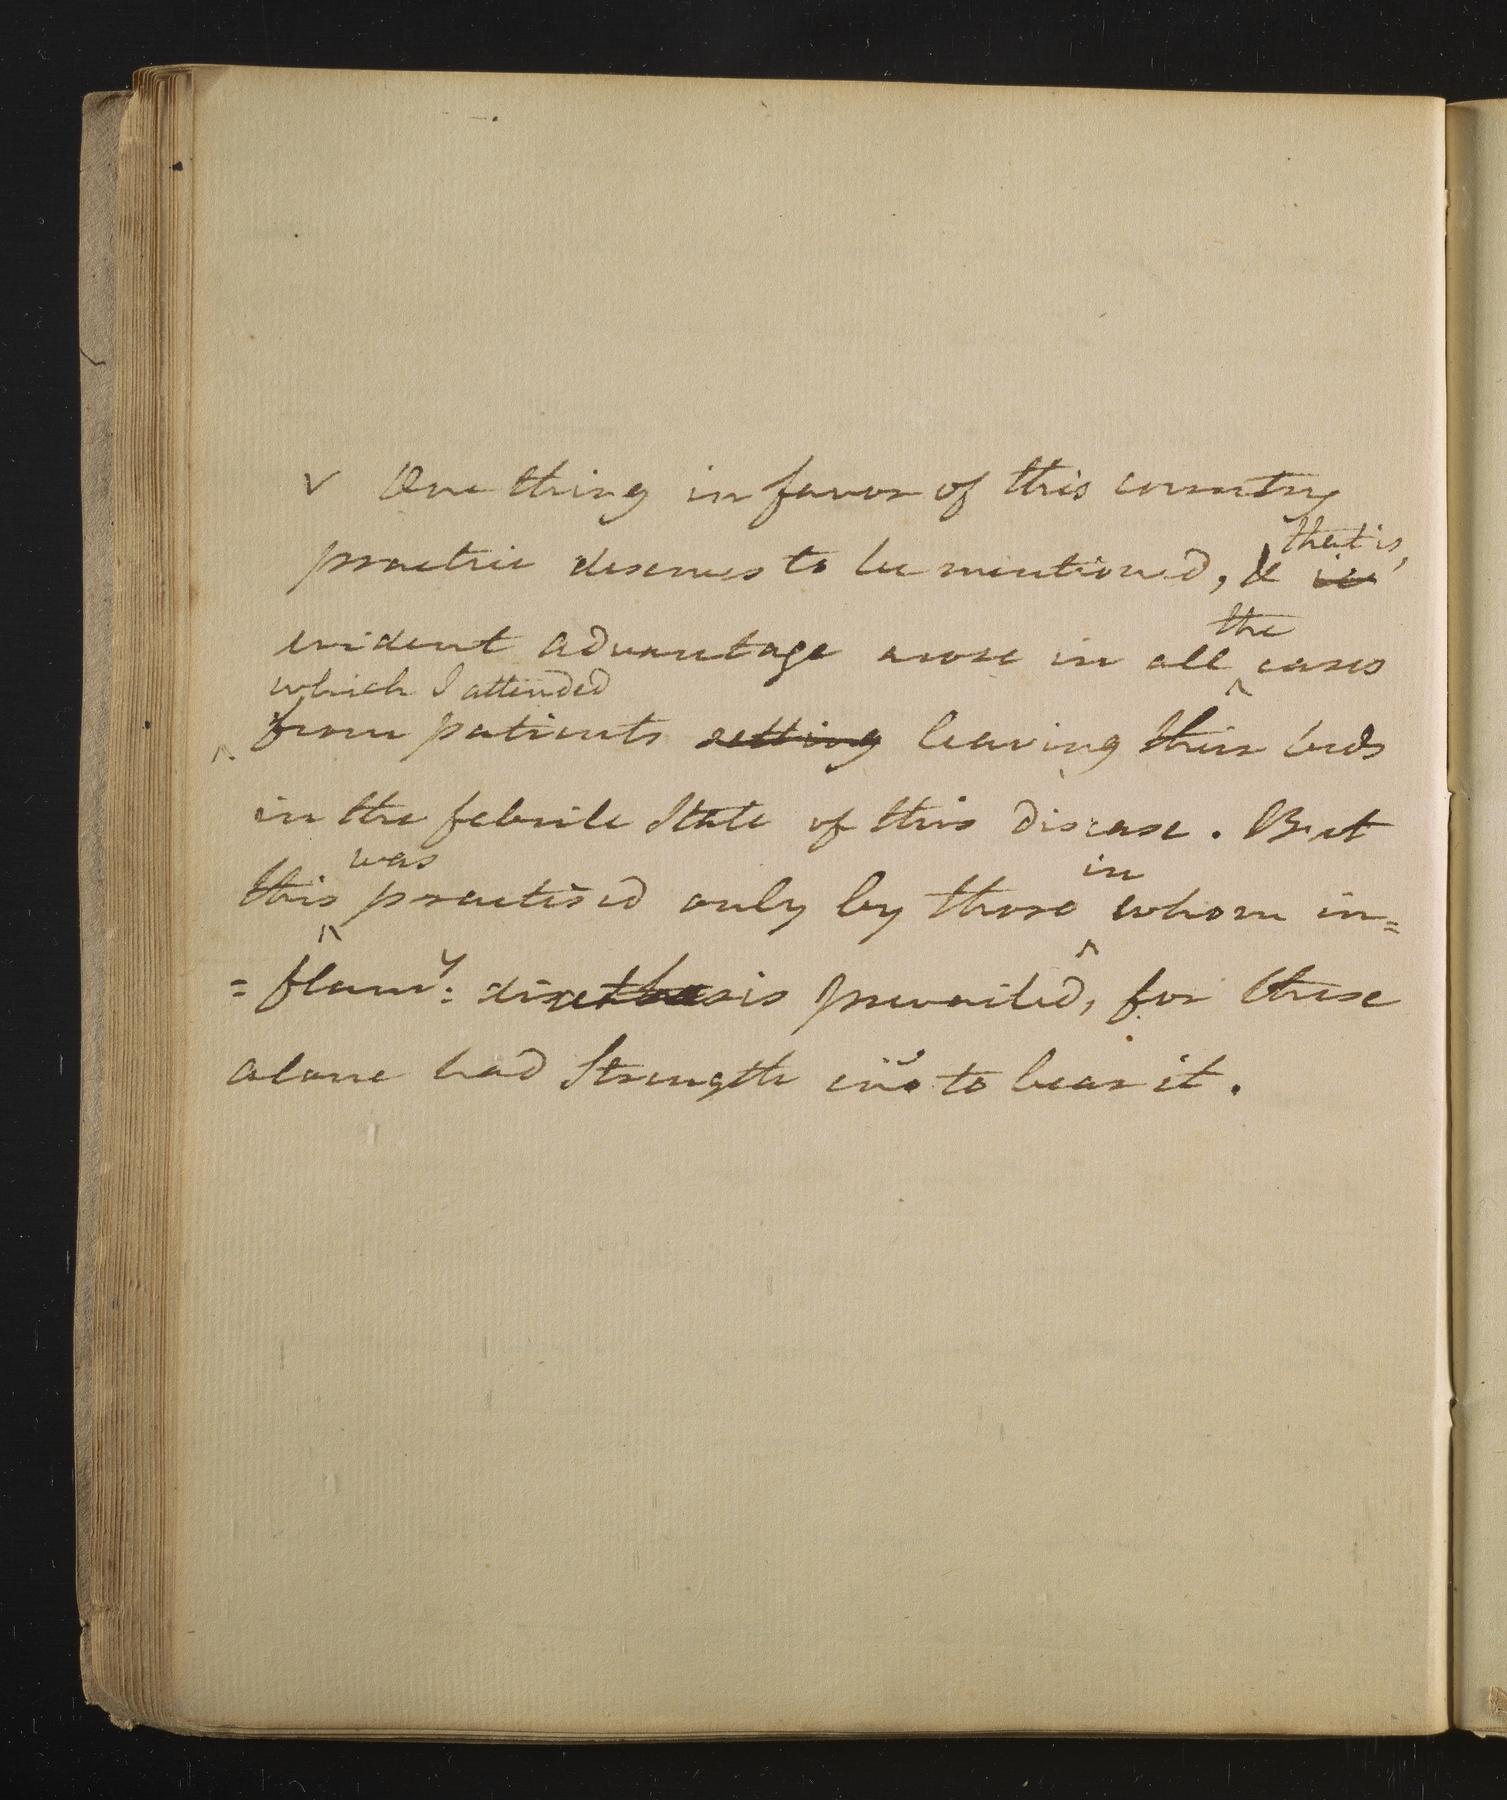 v One thing in favor of this country
that is,
practice deserves to be mentioned, & is
the
evident advantage arose in all ^ cases
which I attended
^ from patients setting leaving their beds
in the febrile State of this disease. But
was in
this ^ practised only by those ^ whom in=
=flamy: diathesis prevailed, for these
alone had Strength eno' to bear it.